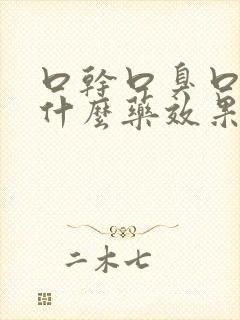 口幹口臭口
什麼藥效果
二木七